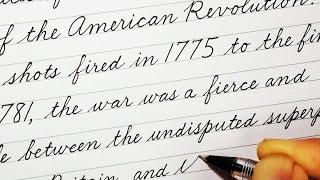 of the American Revolution.
shots fired in 1775 to the
781, the war was a fierce and
between the undisputed
and